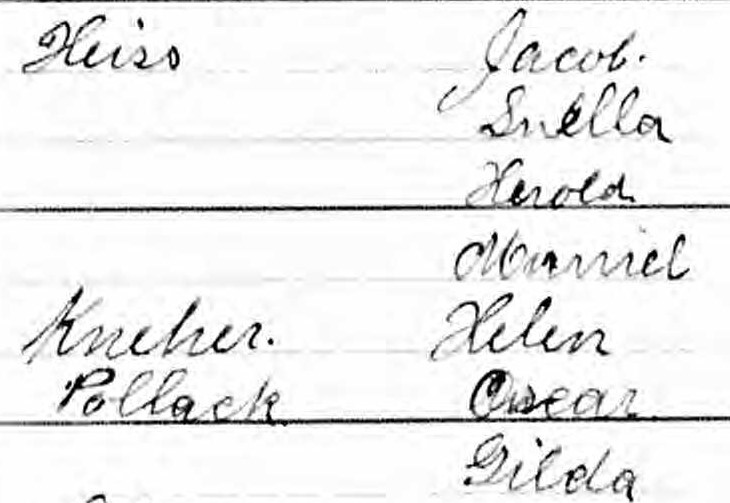 Heiss Jacob.
Luella
Herold
Muriel
Kneher. Helen
Pollack Oscar
Gilda